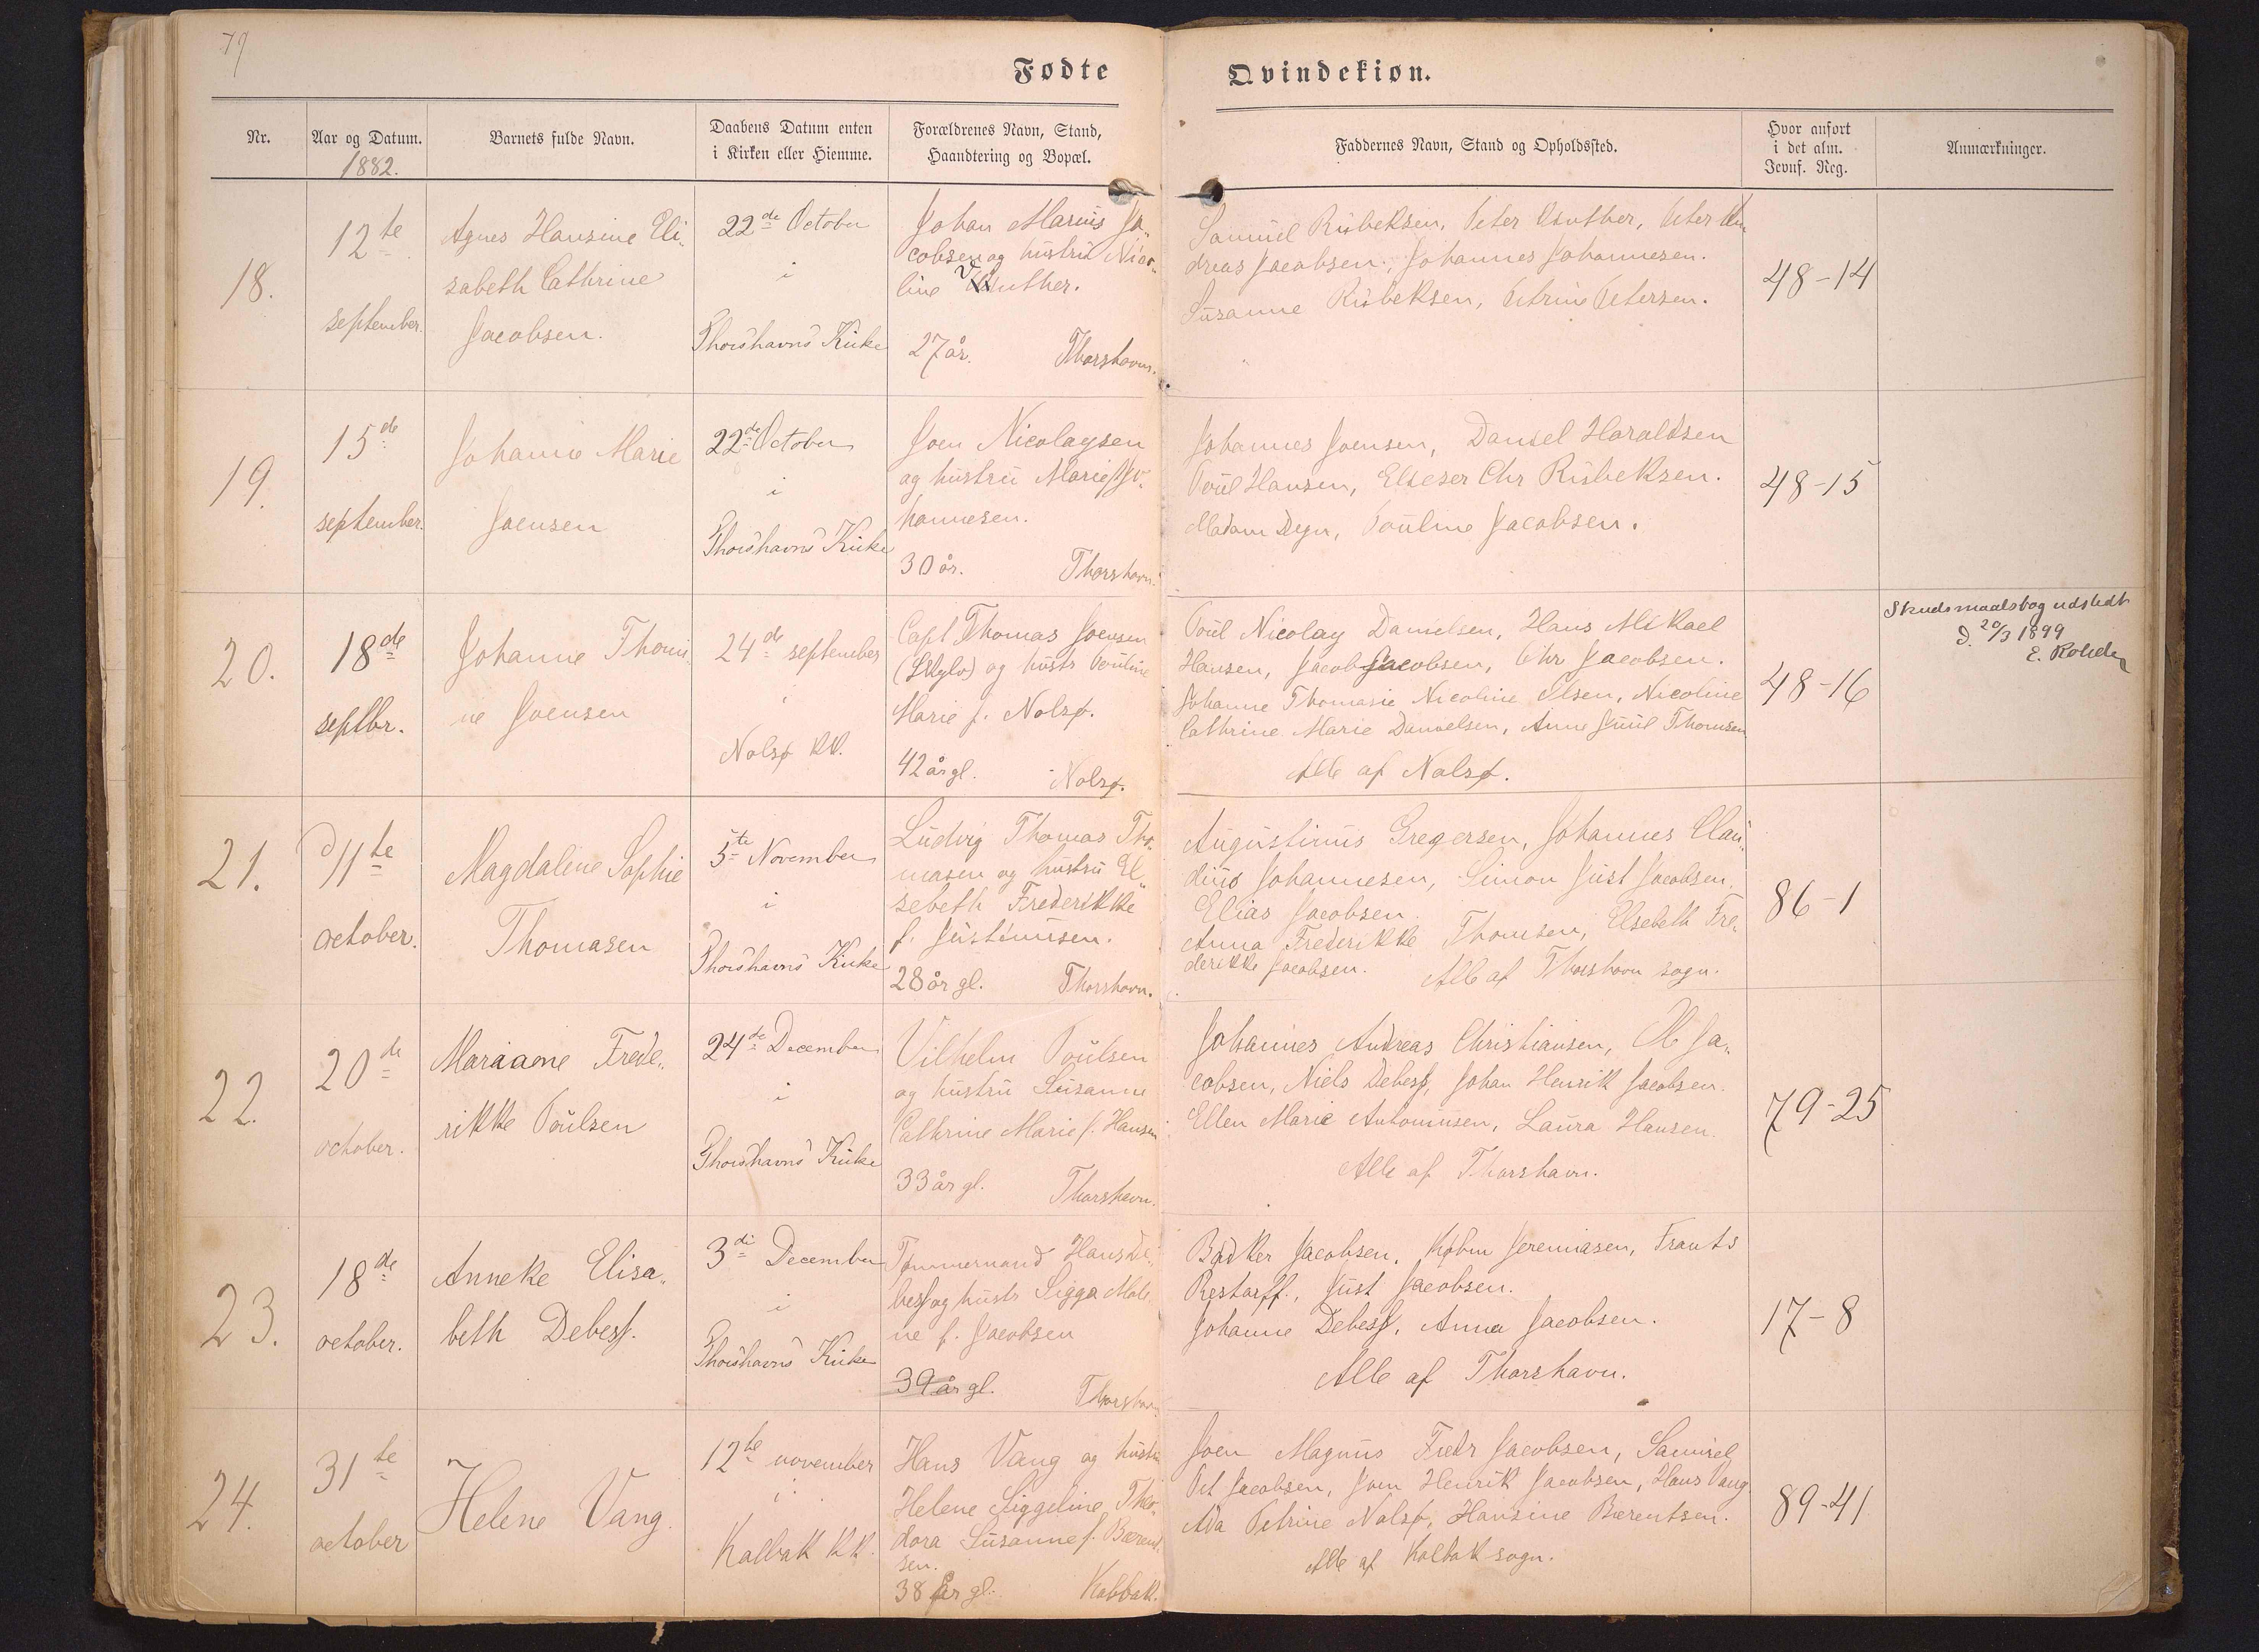 79
Fødte Qvindekiøn.
Nr.
Aar og Datum.
1882.
Barnets fulde Navn.
Daabens Datum enten
i Kirken eller Hiemme.
Forældrenes Navn, Stand,
Haandtering og Bopæl.
Faddernes Navn, Stand og Opholdssted.
Hvor anført
i det alm.
Jevnf. Reg.
Anmærkninger.
18.
12te
september.
Agnes Hansine Eli-
sabeth Cathrine
Jacobsen.
22de October
i
Thorshavns Kirke
Johan Marius Ja-
cobsen og hustru Nico-
line
27 år. Thorshavn.
Samuel Rübeksen, Peter Peter An
dreas Jacobsen, Johannes Johannesen.
Susanne Rübeksen, Petrine Petersen.
48-14
19.
15de
september.
Johanne Marie
Joensen
22de October
i
Thorshavns Kirke
Joen Nicolaysen
og hustru Marie f. Jo-
hannesen.
30 år. Thorshavn.
Johannes Joensen, Daniel Haraldsen
Poul Hansen, Elieser Chr Rübeksen.
Madam Degn, Pouline Jacobsen.
48-15
20.
18de
septbr.
Johanne Thomi-
ne Joensen
24de september
i
Nolsø KK.
Capt Thomas Joensen
og hustr Pouline
Marie f. Nolsø.
42 år gl. Nolsø.
Poul Nicolay Danielsen, Hans Mikael
Hansen, Jacob Jacobsen, Chr Jacobsen.
Johanne Thomasie Nicoline Olsen, Nicoline
Cathrine Marie Danielsen, Anne Juul Thomsen
Alle af Nolsø.
48-16
Skudsmaalsbog udstedt
d. 20/3 1899
21.
d 11te
october.
Magdalene Sophie
Thomasen
5te November
i
Thorshavns Kirke
Ludvig Thomas Tho-
masen og hustru El-
sebeth Frederikke
f. Justinusen.
28 år gl. Thorshavn.
Augustinus Gregersen, Johannes Clau-
dius Johannesen, Simon Just Jacobsen.
Elias Jacobsen.
Anna Frederikke Thomsen, Elsebeth Fre-
derikke Jacobsen. Alle af Thorshavn sogn.
86-1
22.
20de
october.
Mariane Frede-
rikke Poulsen
24de December
i
Thorshavns Kirke
Vilhelm Poulsen
og hustru Susanne
Cathrine Marie f. Hansen
33 år gl. Thorshavn.
Johannes Andreas Christiansen, Ole Ja-
cobsen, Niels Debess, Johan Henrik Jacobsen.
Ellen Marie Antoniusen, Laura Hansen.
Alle af Thorshavn.
79-25
23.
18de
october.
Anneke Elisa-
beth Debess.
3di December
i
Thorshavns Kirke
Tømmermand Hans De-
bess og hustr Sigga Male-
ne f. Jacobsen
39 år gl. Thorshavn
Bødker Jacobsen, Købm Jeremiasen, Frants
Restorff., Just Jacobsen.
Johanne Debess, Anna Jacobsen.
Alle af Thorshavn.
17-8
24.
31te
october
Helene Vang.
12te november
i
Kalbak KK.
Hans Vang og hustru
Helene Siggeline Theo-
dora Susanne f. Bærent-
sen.
38 år gl. Kalbak.
Joen Magnus Fredr Jacobsen, Samuel
Pet Jacobsen, Joen Henrik Jacobsen, Hans Vang
Ada Petrine Nolsø, Hansine Bærentsen.
Alle af Kalbak sogn.
89-41